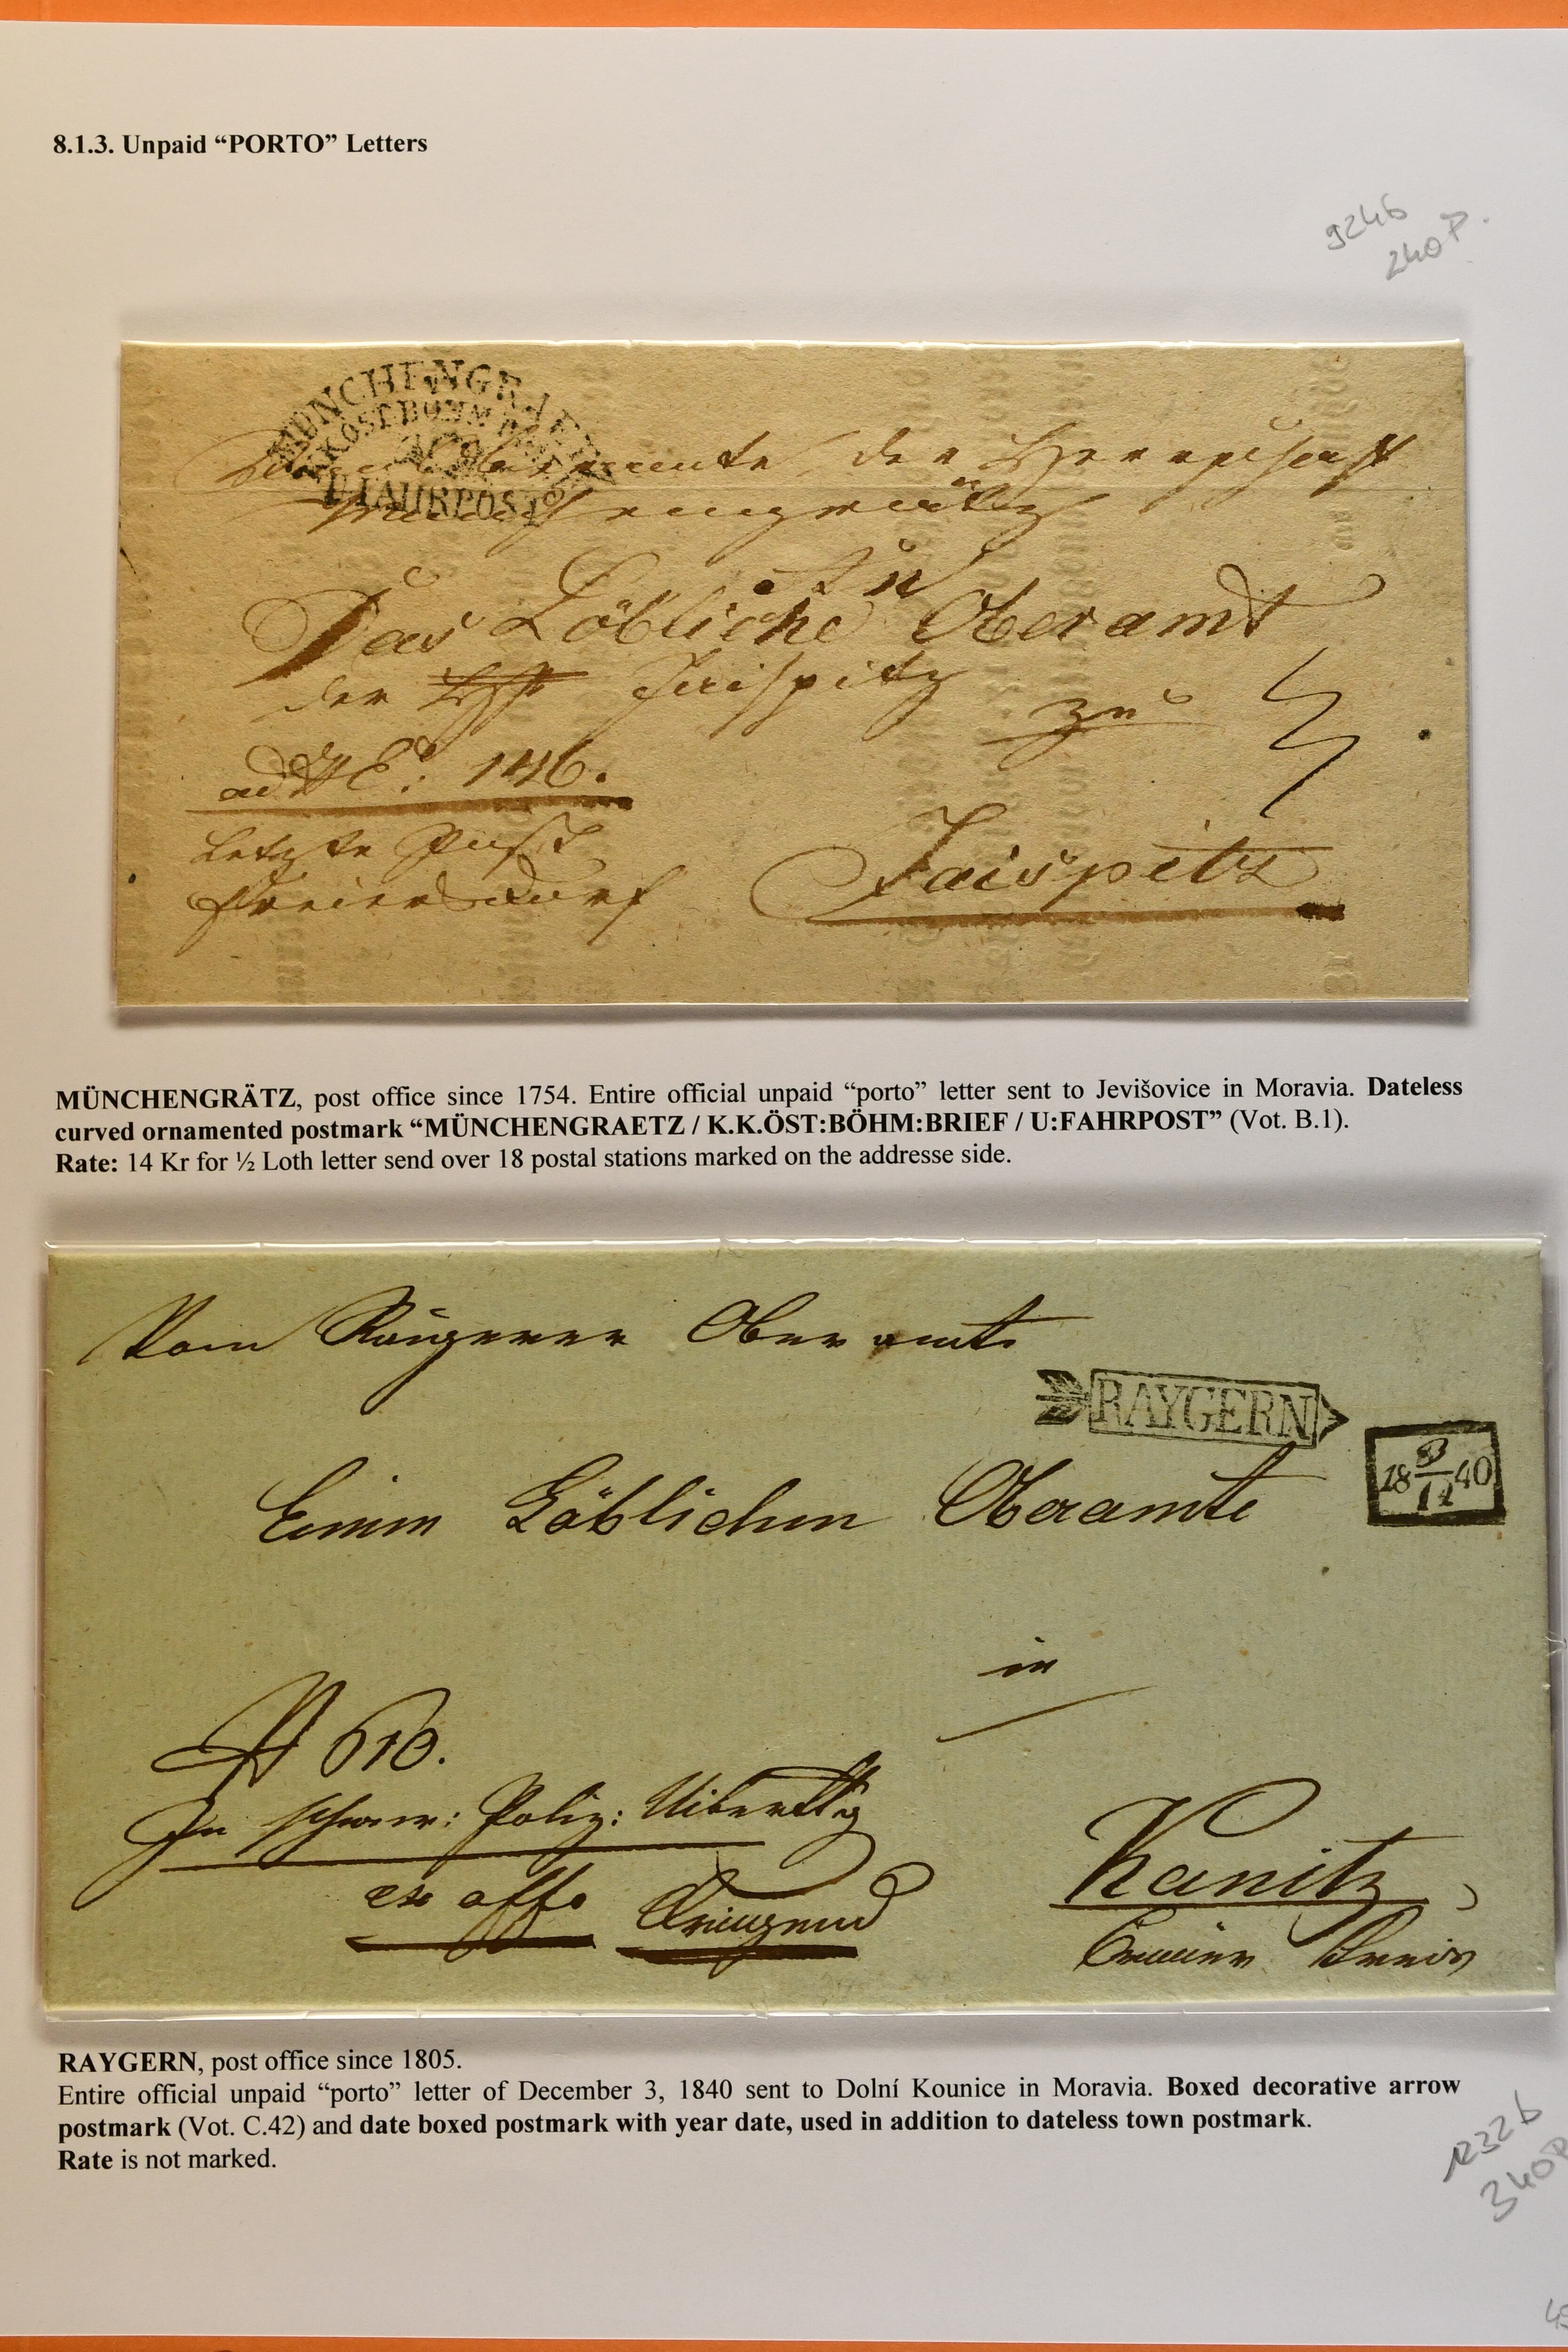 8.1.3. Unpaid “PORTO” Letters
924b
240P.
MÜNCHENGRAETZ
K.K.ÖST:BÖHM:BRIEF
U:FAHRPOST
der Herrschaft
An
Das Löbliche Oberamt
der Jaispitz
zu
1416.
Letzte Post
Jaispitz
MÜNCHENGRÄTZ, post office since 1754. Entire official unpaid “porto” letter sent to Jevišovice in Moravia. Dateless
curved ornamented postmark “MÜNCHENGRAETZ / K.K.ÖST:BÖHM:BRIEF / U:FAHRPOST” (Vot. B.1).
Rate: 14 Kr for ½ Loth letter send over 18 postal stations marked on the addresse side.
Vom Raygerner Oberamte
RAYGERN
18 3/12 40
Einem Löblichen Oberamte
in
N 610.
In schwer: Poliz: Uibertttg
ex offo Dringend
Kanitz
Brünner Kreis
RAYGERN, post office since 1805.
Entire official unpaid “porto” letter of December 3, 1840 sent to Dolní Kounice in Moravia. Boxed decorative arrow
postmark (Vot. C.42) and date boxed postmark with year date, used in addition to dateless town postmark.
Rate is not marked.
1232b
340P